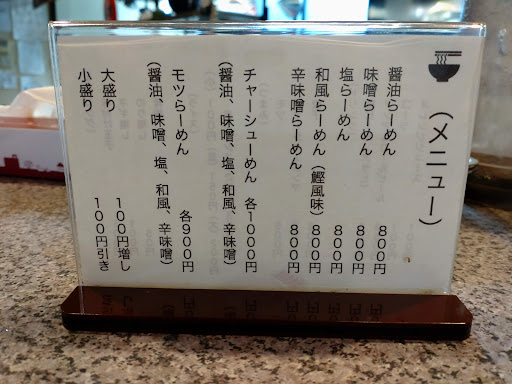 （メニュー）
醤油らーめん 800円
味噌らーめん 800円
塩らーめん 800円
和風らーめん（鰹風味） 800円
辛味噌らーめん 800円
チャーシューめん 各1000円
（醤油、味噌、塩、和風、辛味噌）
モツらーめん 各900円
（醤油、味噌、塩、和風、辛味噌）
大盛り 100円増し
小盛り 100円引き